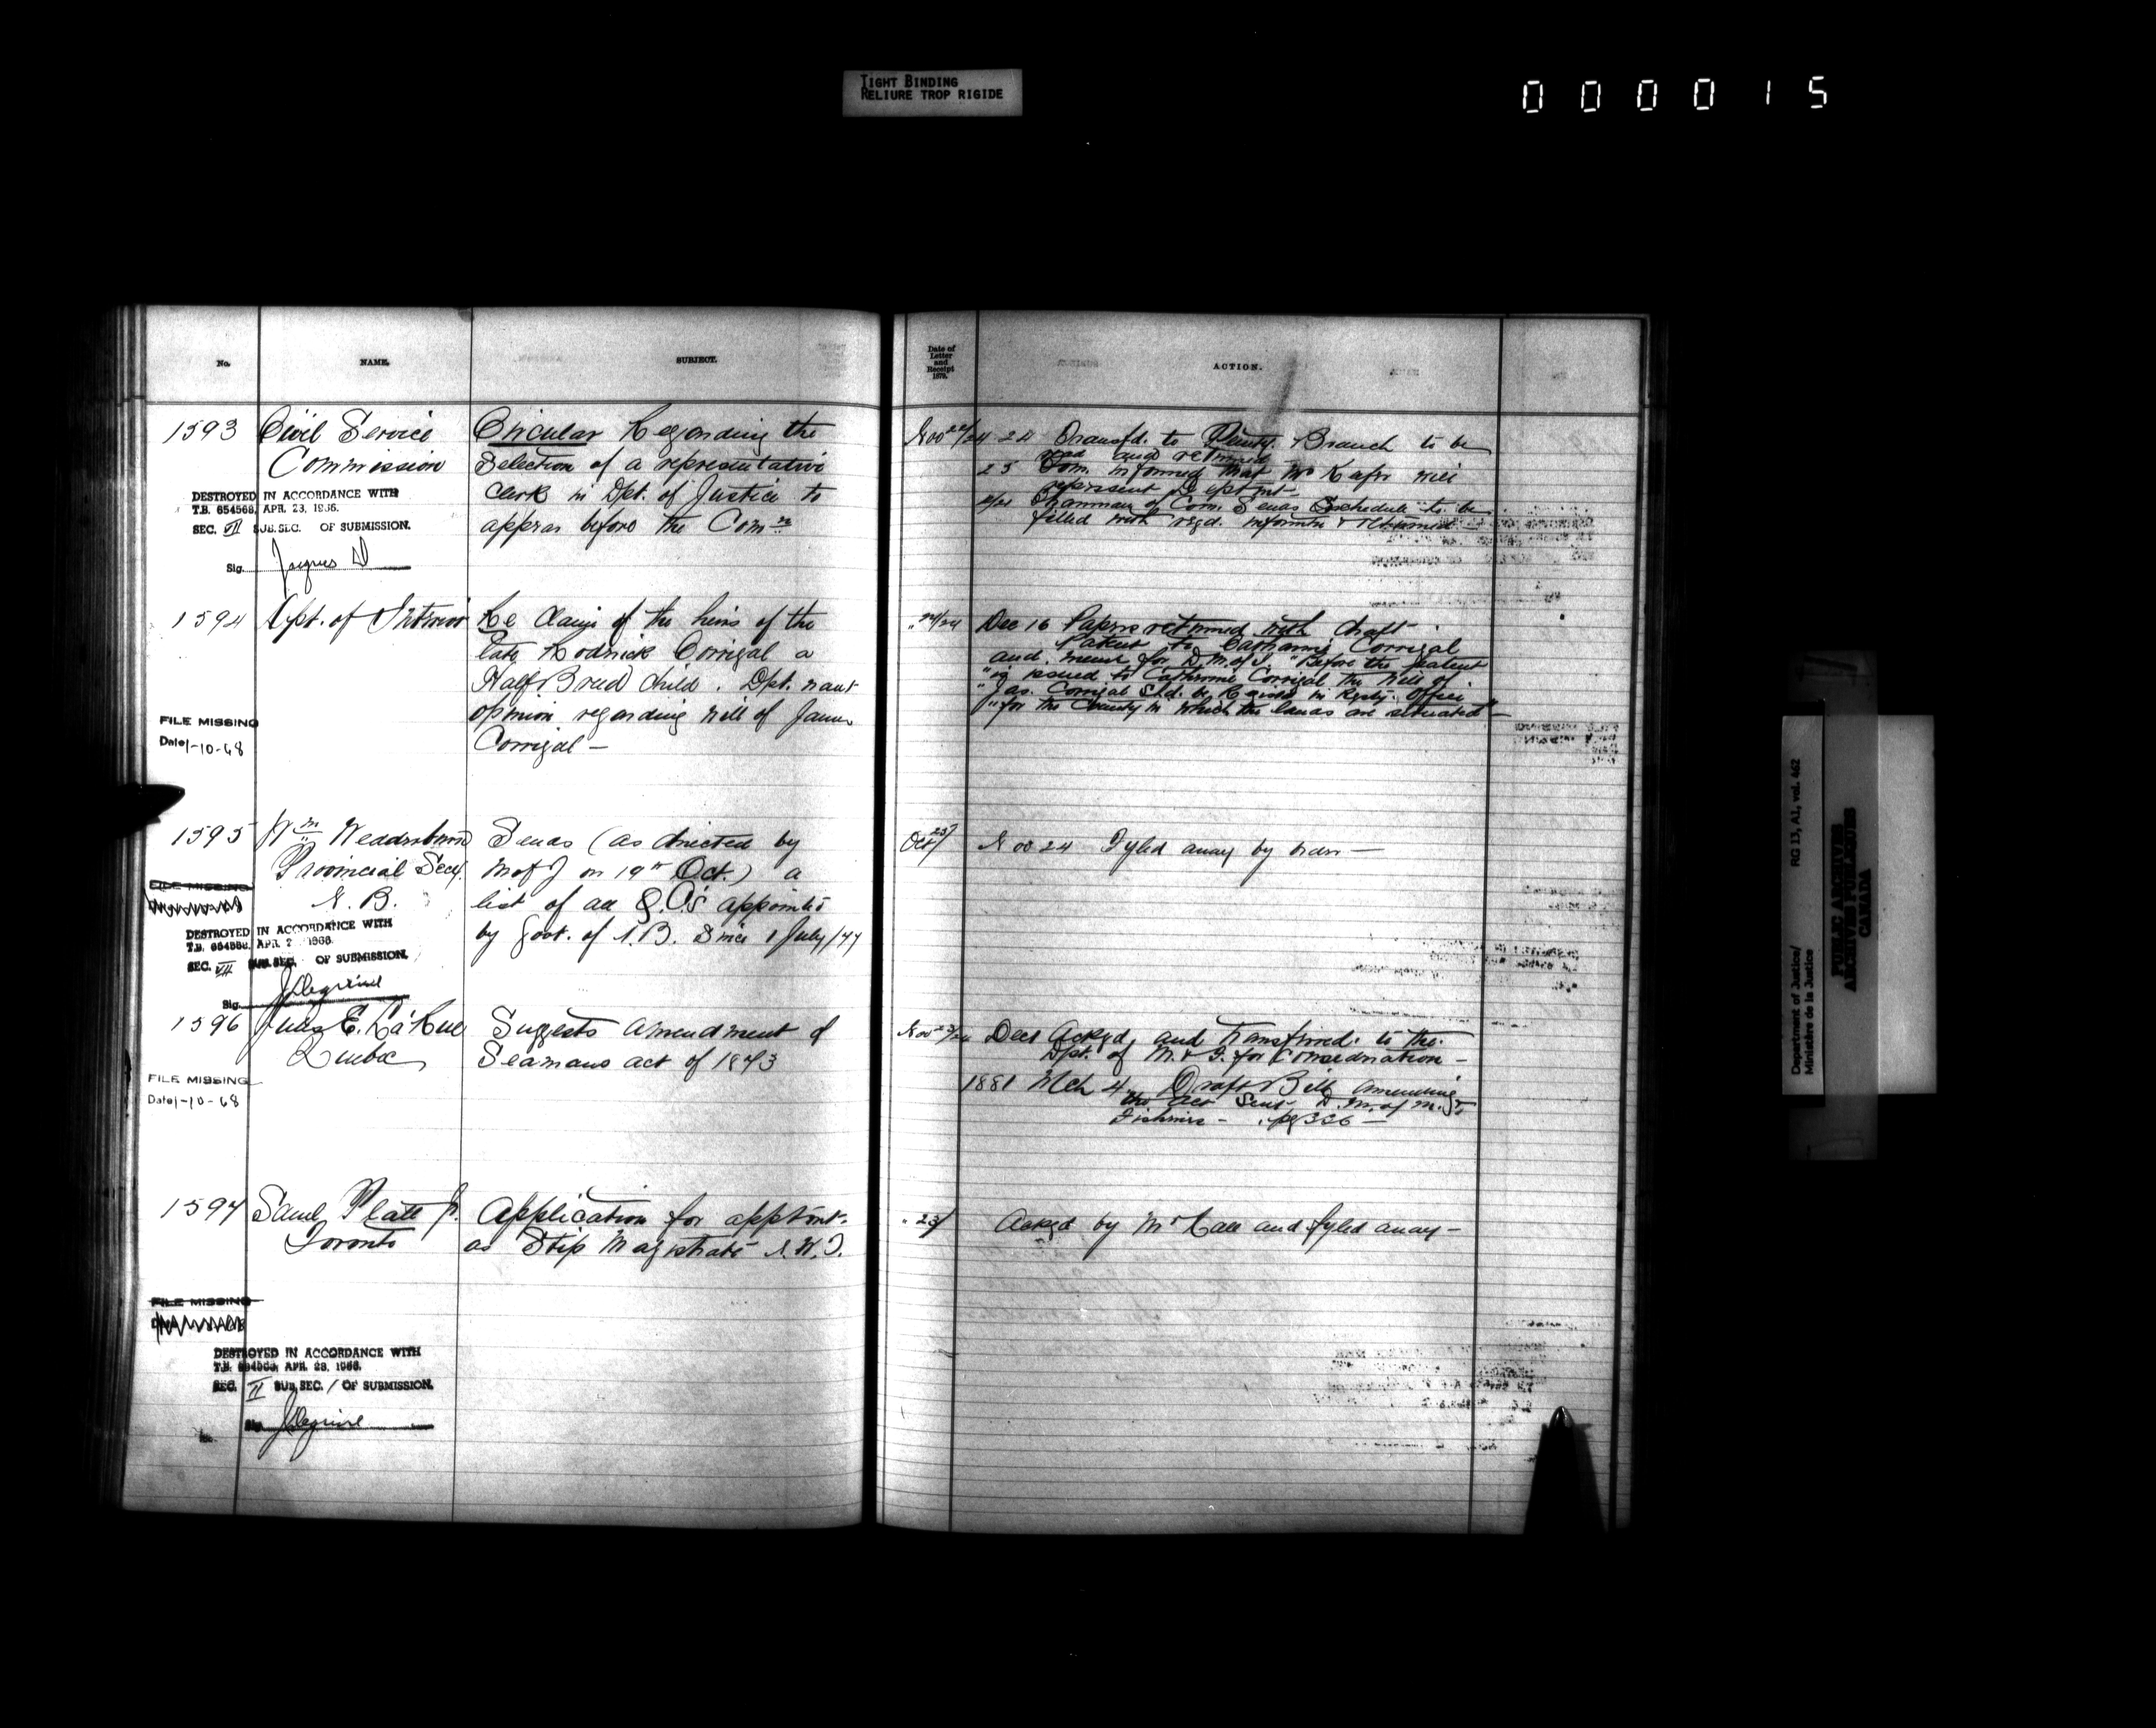 TIGHT BINDING
RELIURE TROP RIGIDE
000015
No.
NAME.
SUBJECT.
Date of
Letter
and
Receipt
1879.
ACTION.
1593
Civil Service
Commission
DESTROYED IN ACCORDANCE WITH
T.B. 654568, APR. 23, 1966.
SEC. VII SUB.SEC. OF SUBMISSION.
Sig.
Circular Regarding the
Selection of a representative
Clerk in Dpt. of Justice to
appear before the Comn
Nov 22/24
24 Transfd. to Penty. Branch to be
read and returned
25 Com. informed that Mr
represent Deptmt
Chairman of Com. Sends Schedule to be
filled with reqd. informtn & returned
1594
Dpt. of Interior
FILE MISSING
Date 1-10-68
Re Claim of the heirs of the
late Rodrick Corrigal a
Half Breed child. Dpt. want
opinion regarding will of James
Corrigal —
" 22/24
Dec 16 Papers returned with draft
Patent to Catharine Corrigal
and memo for D.M. of I. "Before the patent
"is issued to Catherine Corrigal the Will of
"Jas. Corrigal Shd. be Regisd in Regty. Office
"for the County in which the lands are situated" —
1595
Wm Wedderburn
Provincial Secy.
N. B.
FILE MISSING
DESTROYED IN ACCORDANCE WITH
T.B. 654568, APR. 2 1966.
SEC. VII SUB.SEC. OF SUBMISSION.
Sig.
Sends (as directed by
M of J on 19th Oct.) a
list of all Q.C's appointed
by Govt. of N.B. Since 1 July/77
Oct 23/
Nov 24 Fyled away by order —
1596
Jules E. LaRue
Quebec
FILE MISSING
Date 1-10-68
Suggests amendment of
Seamans act of 1873
Nov 23/24
Dec 1 Ackgd. and transferred to the
Dpt. of M. & F. for Consideration —
1881 Mch 4 Draft Bill amending
the act Sent D. M. of M. &
Fisheries — pg 326 —
1597
Saml Platt Jr.
Toronto
FILE MISSING
DESTROYED IN ACCORDANCE WITH
T.B. 654568, APR. 23, 1966.
SEC. II SUB.SEC. / OF SUBMISSION.
Sig.
Application for apptmt.
as Stip Magistrate N.W.T.
" 23/
Ackgd by Mr Lash and fyled away —
Department of Justice/
Ministère de la Justice
RG 13, A1, vol. 462
PUBLIC ARCHIVES
ARCHIVES PUBLIQUES
CANADA